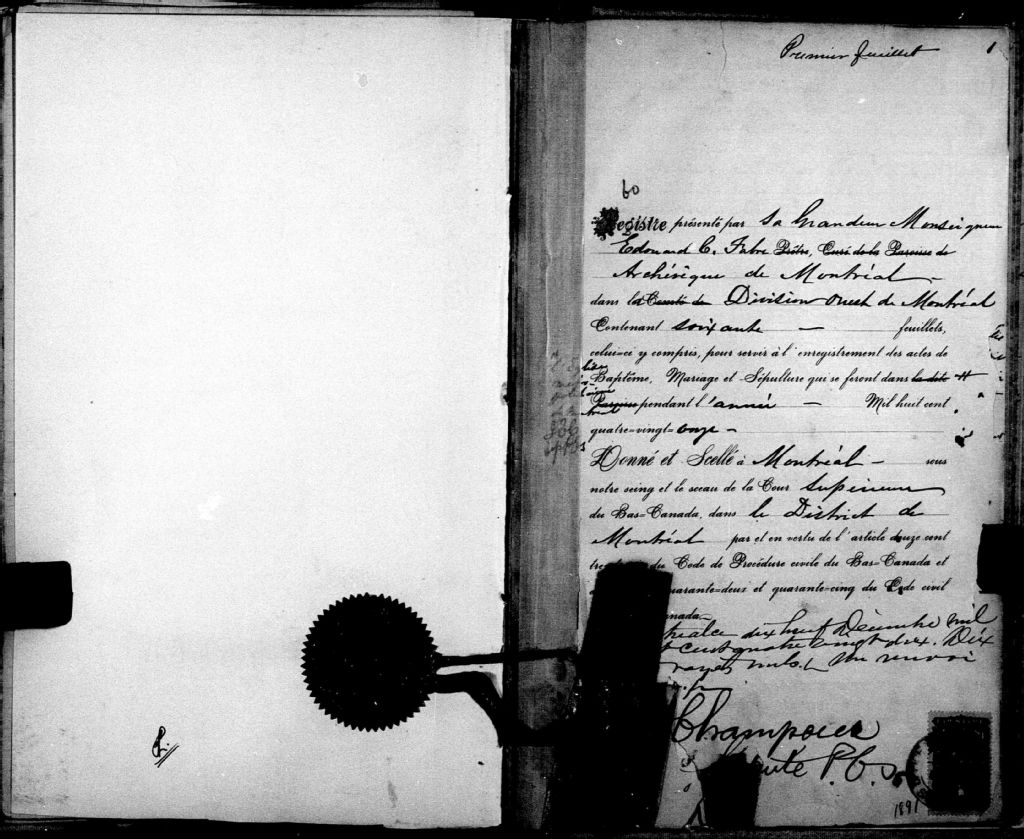 Premier feuillet
1
60
Registre présenté par Sa Grandeur Monseigneur
Edouard C. Fabre Prêtre, Curé de la Paroisse de
Archévêque de Montréal
dans la Comté de Division Ouest de Montréal
Contenant soixante — feuillets,
celui-ci y compris, pour servir à l'enregistrement des actes de
Baptême, Mariage et Sépulture qui se feront dans la dite
Paroisse pendant l'année — Mil huit cent
quatre=vingt=onze —
Donné et Scellé à Montréal — sous
notre seing et le sceau de la Cour Supérieure
du Bas=Canada, dans le District de
Montréal par et en vertu de l'article douze cent
du Code de Procédure civile du Bas=Canada et
quarante=deux et quarante=cinq du Code civil
anada
dix huit Décembre mil
cent quatre vingt dix. Dix
rayés nuls. Un renvoi
Champoux
P.C.S.
1891